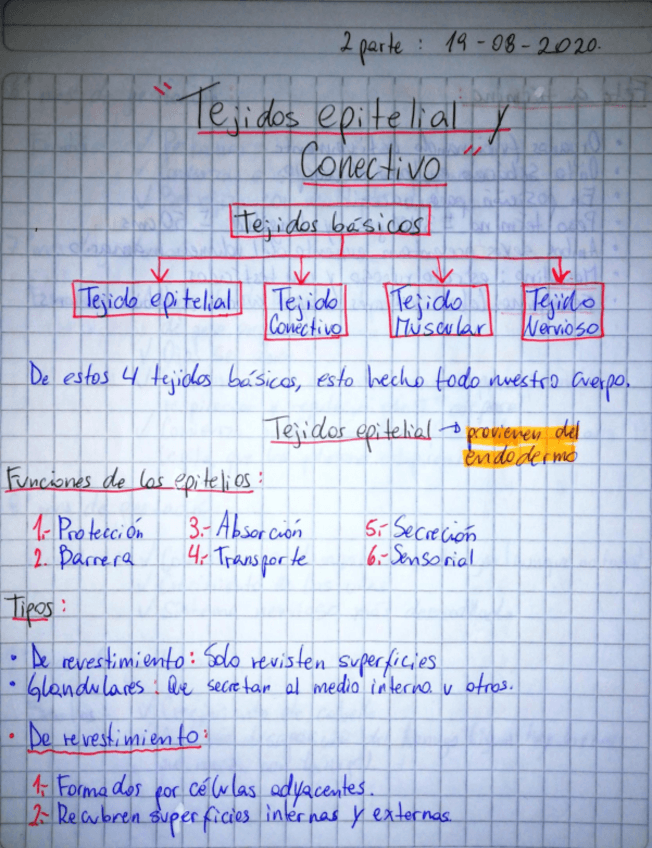 2 parte : 19-08-2020.
"Tejidos epitelial y
Conectivo"
Tejidos básicos
Tejido epitelial
Tejido
Conectivo
Tejido
Muscular
Tejido
Nervioso
De estos 4 tejidos básicos, esto hecho todo nuestro cuerpo.
Tejidos epitelial → provienen del
endodermo
Funciones de los epitelios:
1.- Protección 3.- Absorción 5.- Secreción
2. Barrera 4.- Transporte 6.- Sensorial
Tipos:
• De revestimiento: Solo revisten superficies
• Glandulares: Que secretan al medio interno u otros.
• De revestimiento:
1.- Formados por células adyacentes.
2.- Recubren superficies internas y externas.